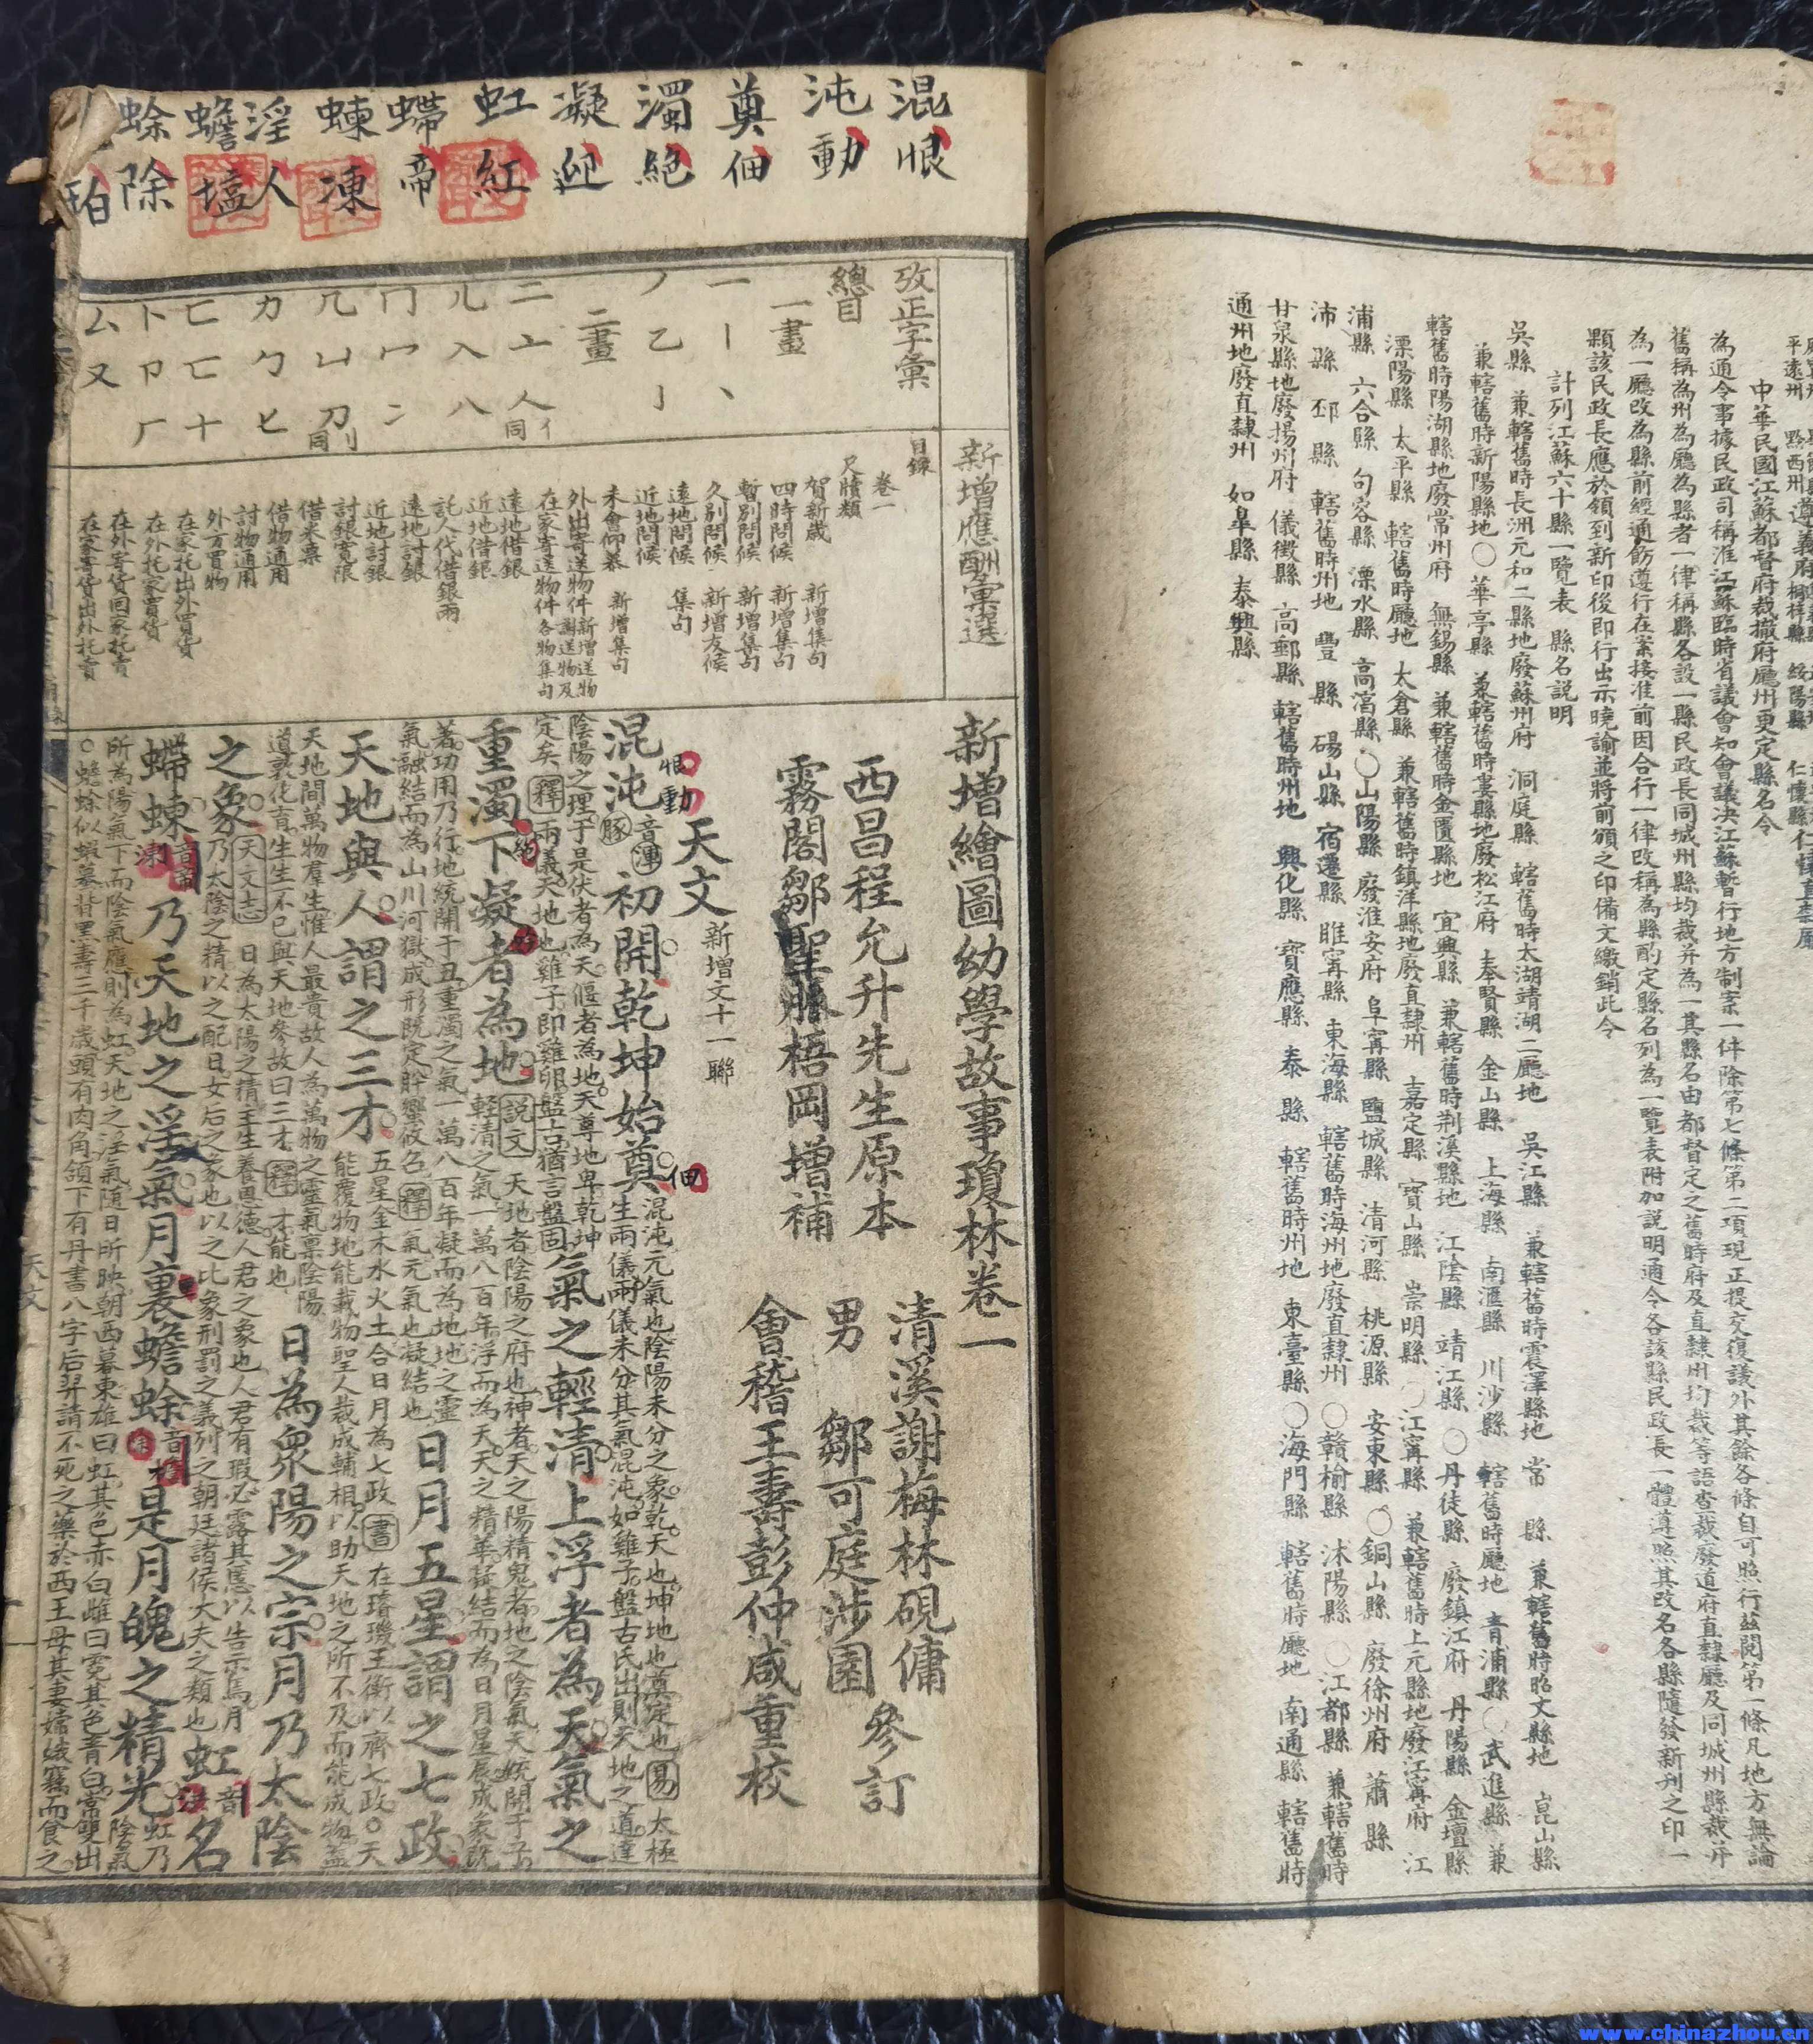 中華民國江蘇都督府裁撤府廳州更定縣名令
為通令事據民政司稱准江蘇臨時省議會知會議決江蘇暫行地方制案一件除第七條第二項現正提交復議外其餘各條自可照行茲閱第一條凡地方無論
舊稱為州為廳為縣者一律稱縣各設一縣民政長同城州縣均裁并為一其縣名由都督定之舊時府及直隸州均裁等語沓裁廢道府直隸廳及同城州縣裁并
為一廳改為縣前經通飭遵行在案接准前因合行一律改稱為縣酌定縣名列為一覽表附加說明通令各該縣民政長一體遵照其改名各縣隨發新刋之印一
顆該民政長應於領到新印後即行出示曉諭並將前頒之印備文繳銷此令
計列江蘇六十縣一覽表 縣名說明
吳縣 兼轄舊時長洲元和二縣地廢蘇州府 洞庭縣 轄舊時太湖靖湖二廳地 吳江縣 兼轄舊時震澤縣地 常 縣 兼轄舊時昭文縣地 崑山縣
兼轄舊時新陽縣地○華亭縣 兼轄舊時婁縣地廢松江府 奉賢縣 金山縣 上海縣 南滙縣 川沙縣 轄舊時廳地 青浦縣○武進縣 兼
轄舊時陽湖縣地廢常州府 無錫縣 兼轄舊時金匱縣地 宜興縣 兼轄舊時荆溪縣地 江陰縣 靖江縣○丹徒縣 廢鎮江府 丹陽縣 金壇縣
溧陽縣 太平縣 轄舊時廳地 太倉縣 兼轄舊時鎮洋縣地廢直隸州 嘉定縣 寶山縣 崇明縣○江寗縣 兼轄舊時上元縣地廢江寗府 江
浦縣 六合縣 句容縣 溧水縣 高湻縣○山陽縣 廢淮安府 阜寗縣 鹽城縣 清河縣 桃源縣 安東縣○銅山縣 廢徐州府 蕭縣
沛縣 邳縣 轄舊時州地 豐縣 碭山縣 宿遷縣 睢寗縣 東海縣 轄舊時海州地廢直隸州○贛榆縣 沭陽縣○江都縣 兼轄舊時
甘泉縣地廢揚州府 儀徵縣 高郵縣 轄舊時州地 興化縣 寶應縣 泰縣 轄舊時州地 東臺縣○海門縣 轄舊時廳地 南通縣 轄舊時
通州地廢直隸州 如臯縣 泰興縣
混恨
沌動
奠佃
濁絶
凝迎
虹紅
蝃帝
蝀凍
淫人
蟾壏
蜍除
珀
攷正字彙
總目
一畫
一丨丶
丿乙亅
二畫
二亠人同亻
儿入八
冂冖冫
几凵刀同刂
力勹匕
匚匸十
卜卩厂
厶又
新增應酬彙選
目錄
卷一
尺牘類
賀新歲 新增集句
四時問候 新增集句
暫別問候 新增集句
久別問候 新增友候
遠地問候 集句
近地問候
未會仰慕 新增集句
外出寄送物件 新增送物謝送物及
在家寄送物件 各物集句
遠地借銀
近地借銀
託人代借銀兩
遠地討銀
近地討銀
討銀寬限
借米票
借物通用
討物通用
外方買物
在家托出外買貨
在外托家買貨
在外寄貨回家托賣
在家寄貨出外托賣
新增繪圖幼學故事瓊林卷一
西昌程允升先生原本 清溪謝梅林硯傭
霧閣鄒聖脈梧岡增補 男 鄒可庭涉園 參訂
會稽王壽彭仲咸重校
天文 新增文十一聯
混沌初開乾坤始奠 混沌元氣也陰陽未分之象乾天也坤地也奠定也 易 太極
生兩儀兩儀未分其氣混沌如雞子盤古氏出則天地之道達
陰陽之理于是伏者為天偃者為地天尊地卑乾坤
定矣 釋 兩儀天地也雞子即雞卵盤古猶言盤固 氣之輕清上浮者為天氣之
重濁下凝者為地 說文 天地者陰陽之府也神者天之陽精鬼者地之陰氣天統開于子
輕清之氣一萬八百年浮而為天天之精華凝結而為日月星辰成象既
著功用乃行地統開于丑重濁之氣一萬八百年凝而為地地之靈
氣融結而為山川河嶽成形既定 釋 氣元氣也凝結也 日月五星謂之七政
天地與人謂之三才 五星金木水火土合日月為七政 書 在璿璣玉衡以齊七政○天
能覆物地能載物聖人裁成輔相以助天地之所不及而能成物蓋
天地間萬物群生惟人最貴故人為萬物之靈氣禀陰陽
道敦化育生生不已與天地參故曰三才 釋 才能也 日為衆陽之宗月乃太陰
之象 天文志 日為太陽之精主生養恩德人君之象也人君有瑕必露其慝以告示焉月
乃太陰之精以之配日女后之象也以之比象刑罰之義列之朝廷諸侯大夫之類也 虹名
蝃蝀乃天地之淫氣月裏蟾蜍是月魄之精光 虹乃陰氣
所為陽氣下而陰氣應則為虹天地之淫氣隨日所映朝西暮東雄曰虹其色赤白雌曰霓其色青白常雙出
○蟾蜍似蝦蟇背黑壽三千歲頭有肉角頷下有丹書八字后羿請不死之藥於西王母其妻嫦娥竊而食之
www.chinazhou.cn